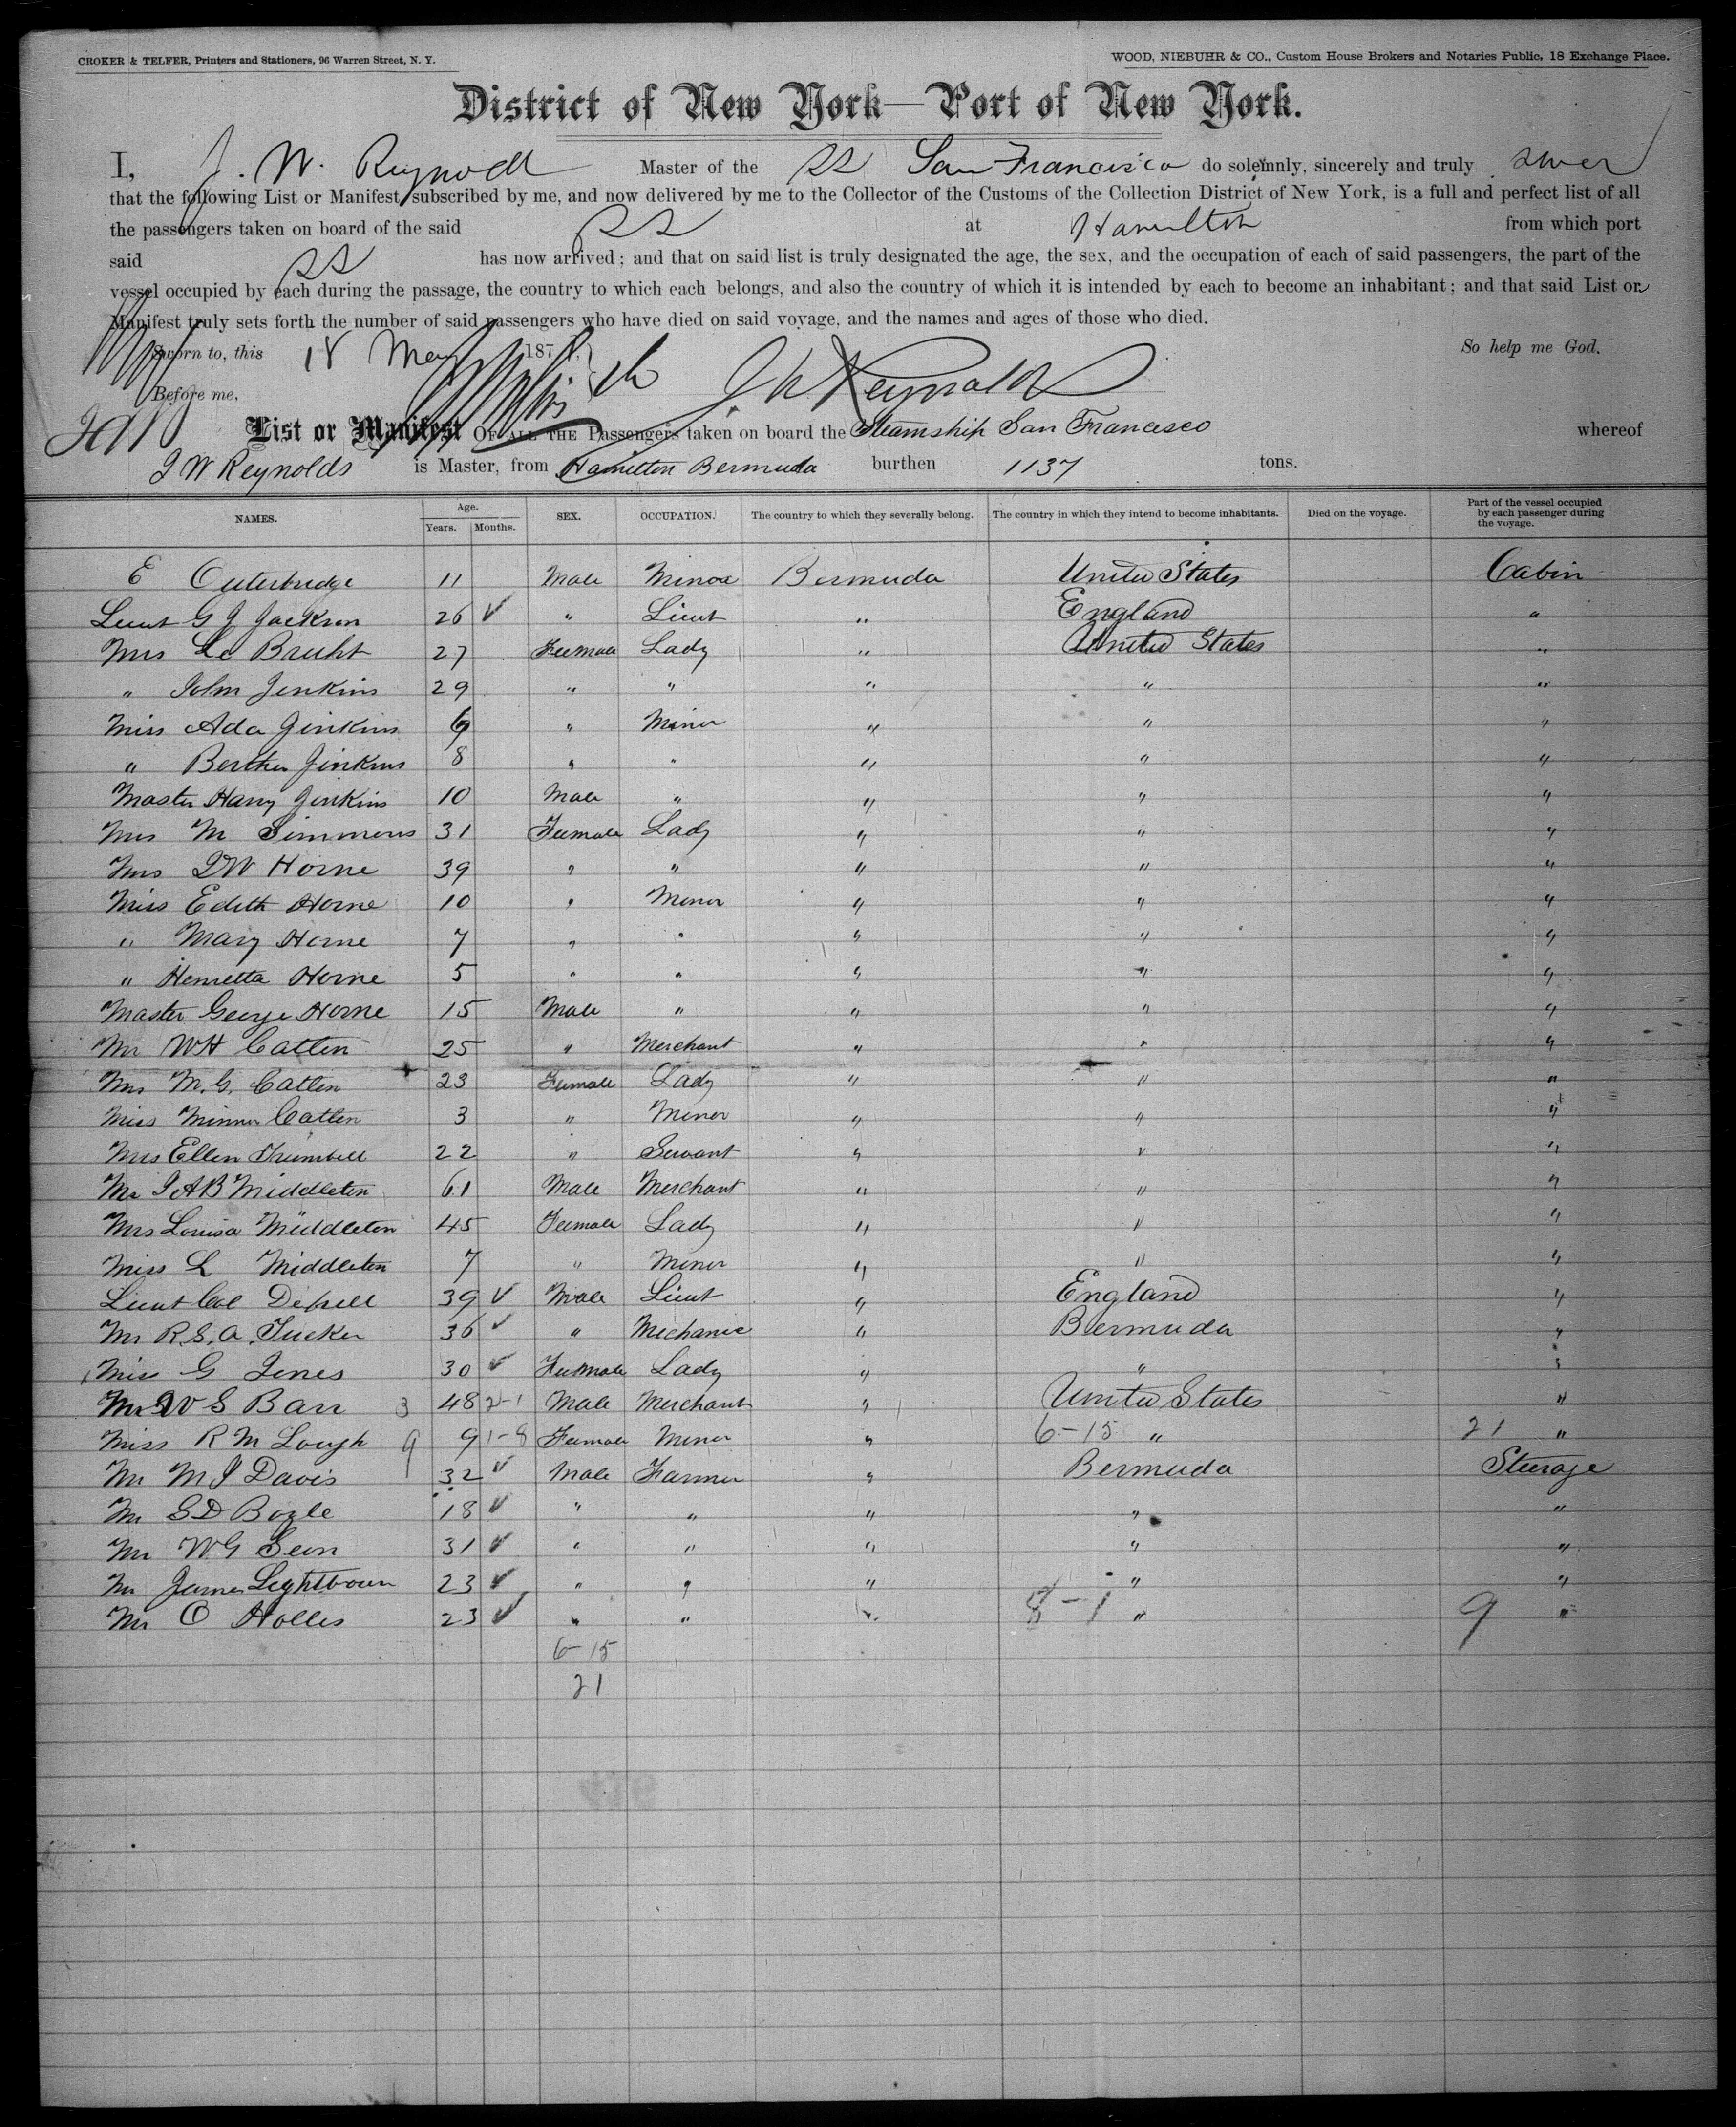 CROKER & TELFER, Printers and Stationers, 96 Warren Street, N. Y.
WOOD, NIEBUHR & CO., Custom House Brokers and Notaries Public, 18 Exchange Place.
District of New York—Port of New York.
I, J. W. Reynolds Master of the SS San Francisco do solemnly, sincerely and truly swear
that the following List or Manifest, subscribed by me, and now delivered by me to the Collector of the Customs of the Collection District of New York, is a full and perfect list of all
the passengers taken on board of the said SS at Hamilton from which port
said SS has now arrived; and that on said list is truly designated the age, the sex, and the occupation of each of said passengers, the part of the
vessel occupied by each during the passage, the country to which each belongs, and also the country of which it is intended by each to become an inhabitant; and that said List or
Manifest truly sets forth the number of said passengers who have died on said voyage, and the names and ages of those who died.
Sworn to, this 18 May 187 So help me God.
Before me, J W Reynolds
List or Manifest OF ALL THE Passengers taken on board the Steamship San Francisco whereof
J W Reynolds is Master, from Hamilton Bermuda burthen 1137 tons.
NAMES. Age. Years. Months. SEX. OCCUPATION. The country to which they severally belong. The country in which they intend to become inhabitants. Died on the voyage. Part of the vessel occupied by each passenger during the voyage.
E Outerbridge 11 Male Minor Bermuda United States Cabin
Lieut G J Jackson 26 " Lieut " England "
Mrs Le Female Lady " United States "
" John Jenkins 29 " " " " "
Miss Ada Jenkins " Minor " " "
" Bertha Jenkins 8 " " " " "
Master Harry Jenkins 10 Male " " " "
Mrs M Simmons 31 Female Lady " " "
Mrs J W Horne 39 " " " " "
Miss Edith Horne 10 " Minor " " "
" Mary Horne 7 " " " " "
" Henretta Horne 5 " " " " "
Master George Horne 15 Male " " " "
Mr WH Catlin 25 " Merchant " " "
Mrs M. G. Catlin 23 Female Lady " " "
Miss Minnie Catlin 3 " Minor " " "
Mrs Ellen Trumbell 22 " Servant " " "
Mr J A B Middleton 61 Male Merchant " " "
Mrs Louisa Middleton 45 Female Lady " " "
Miss L Middleton 7 " Minor " " "
Lieut Col 39 Male Lieut " England "
Mr R. S. A. Tucker 36 " Mechanic " Bermuda "
Miss G Jones 30 Female Lady " " "
Mr W S Barr 3 48 2-1 Male Merchant " United States "
Miss R M Lough 9 9 1-8 Female Minor " 6-15 " 21 "
Mr M J Davis 32 Male Farmer " Bermuda Steerage
Mr S D Bogle 18 " " " " "
Mr W. G 31 " " " " "
Mr James Lightbourn 23 " " " " "
Mr O Hollis 23 " " " 8-1 " 9 "
6-15
21